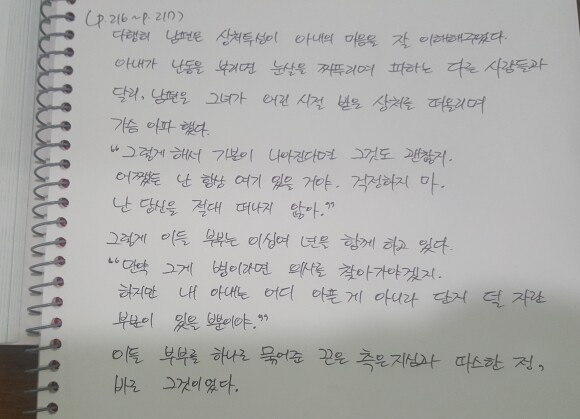 (p.216~p.217)
다행히 남편은 상처투성이 아내의 마음을 잘 이해해주었다.
아내가 난동을 부리면 눈살을 찌푸리며 피하는 다른 사람들과
달리, 남편은 그녀가 어린 시절 받은 상처를 떠올리며
가슴 아파 했다.
“그렇게 해서 기분이 나아진다면 그것도 괜찮지.
어쨌든 난 항상 여기 있을 거야. 걱정하지 마.
난 당신을 절대 떠나지 않아.”
그렇게 이들 부부는 이십여 년을 함께 하고 있다.
“만약 그게 병이라면 의사를 찾아가야겠지.
하지만 내 아내는 어디 아픈 게 아니라 단지 덜 자란
부분이 있을 뿐이야.”
이들 부부를 하나로 묶어준 끈은 측은지심과 따스한 정,
바로 그것이었다.